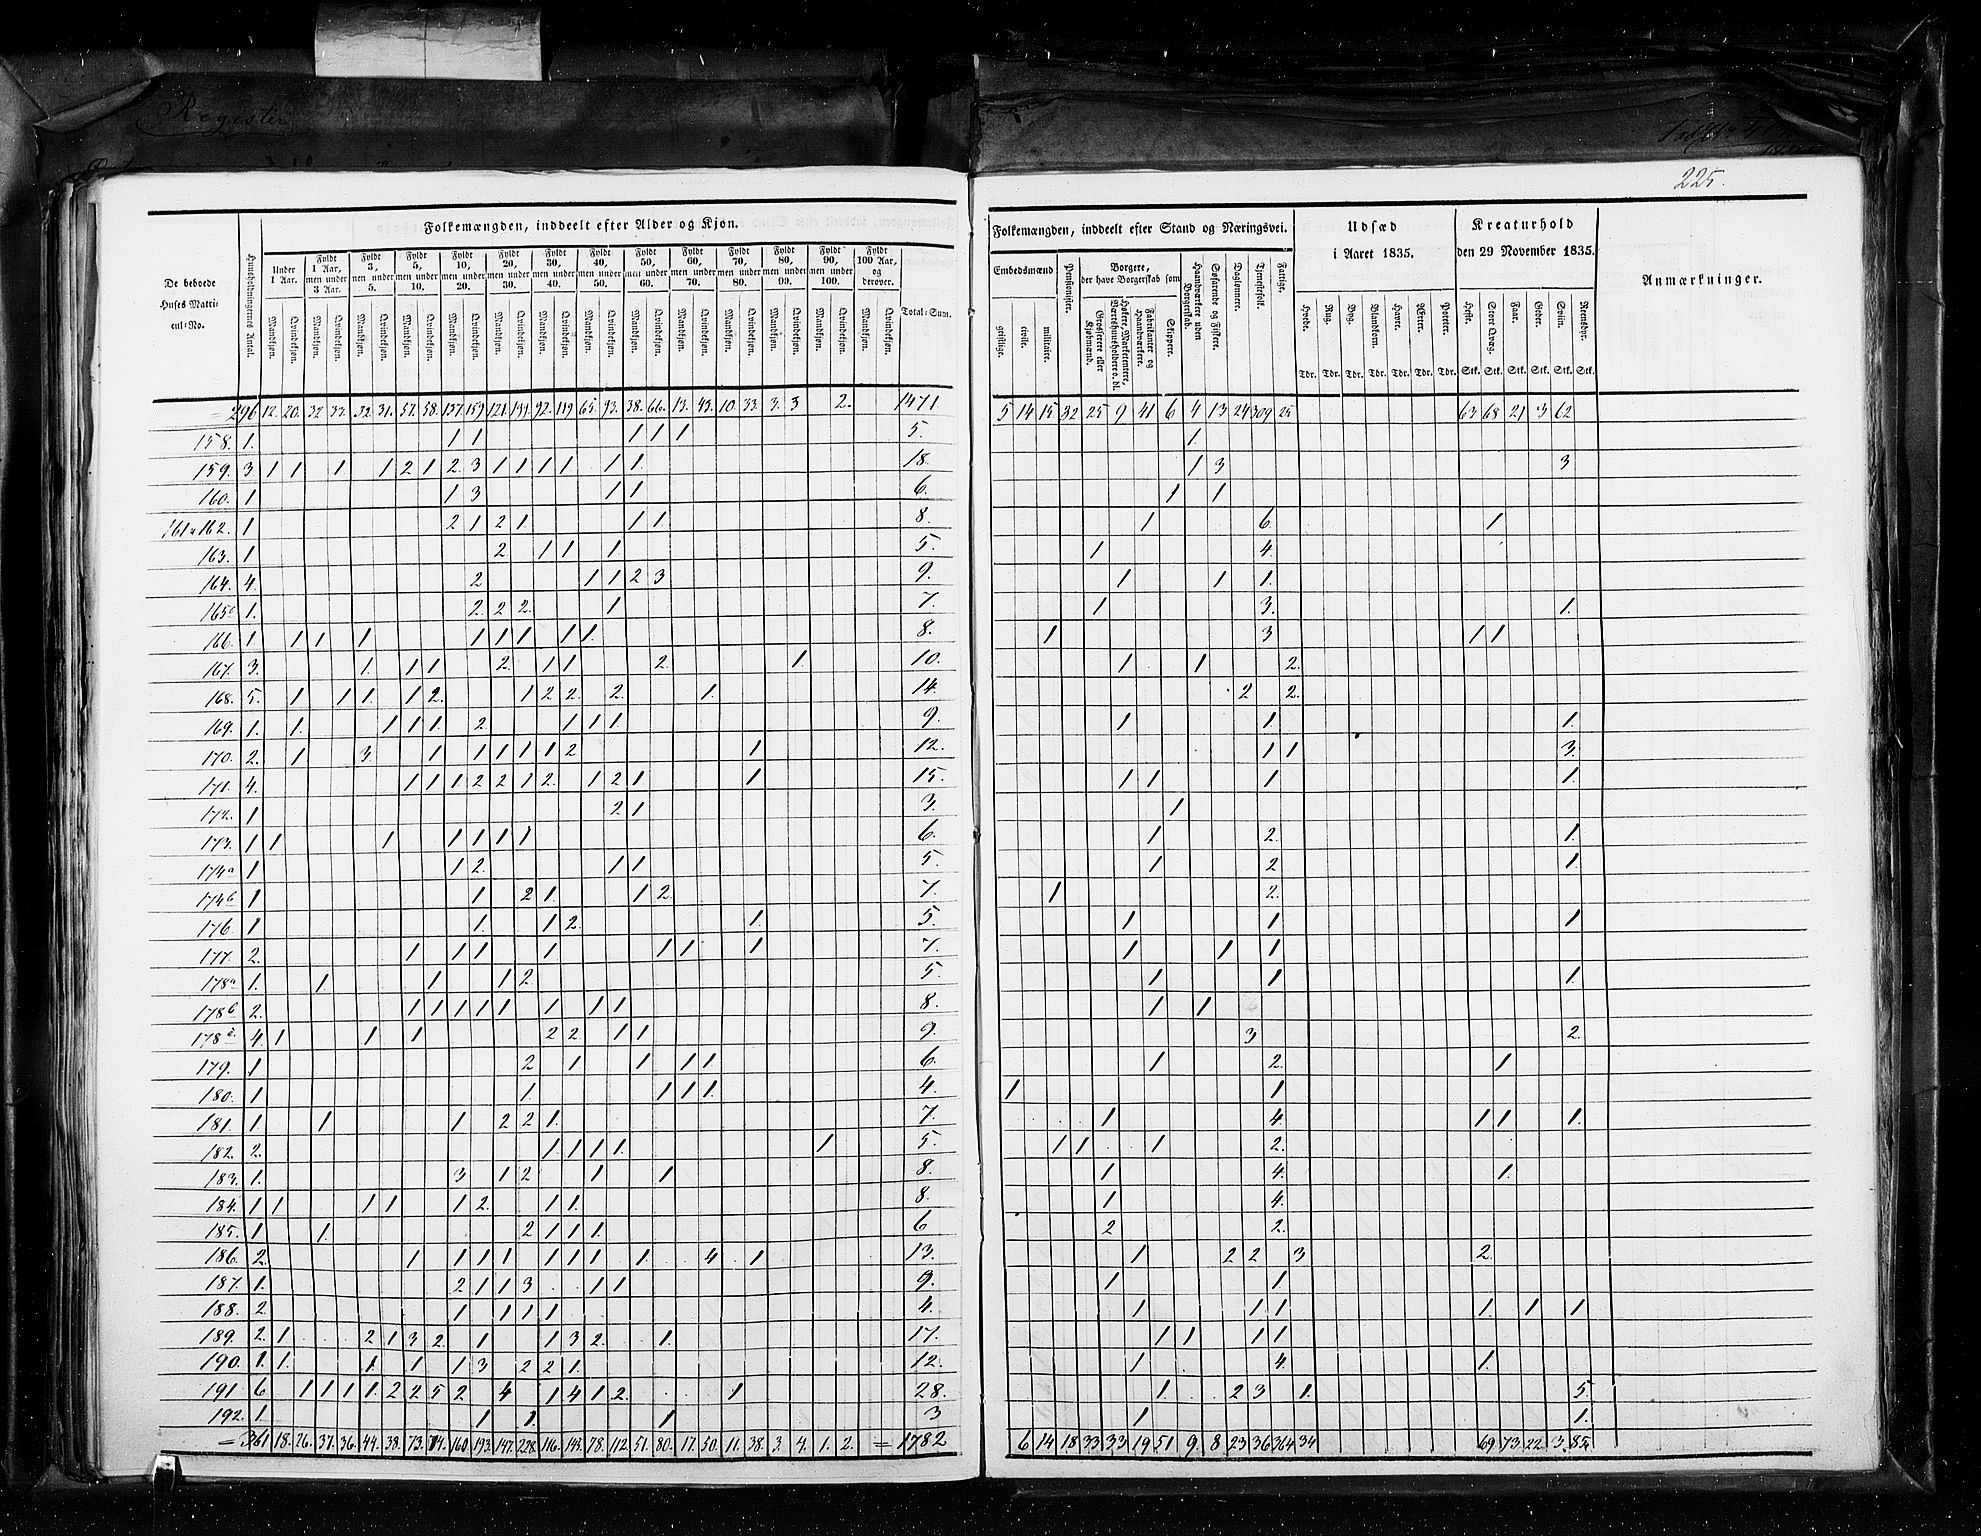 Register
225.
Folkemængden, inddeelt efter Alder og Kjøn.
De beboede Huses Matricul-No.
Huusholdningernes Antal.
Under 1 Aar.
Fyldt 1 Aar, men under 3 Aar.
Fyldt 3, men under 5.
Fyldt 5, men under 10.
Fyldt 10, men under 20.
Fyldt 20, men under 30.
Fyldt 30, men under 40.
Fyldt 40, men under 50.
Fyldt 50, men under 60.
Fyldt 60, men under 70.
Fyldt 70, men under 80.
Fyldt 80, men under 90.
Fyldt 90, men under 100.
Fyldt 100 Aar, og derover.
Mandkjøn. Qvindekjøn.
Total-Sum.
Folkemængden, inddeelt efter Stand og Næringsvei.
Embedsmænd
geistlige. civile. militaire.
Pensionister.
Borgere, der have Borgerskab som
Grosserere eller Kjøbmænd.
Høkere, Marketentere, Værtshuusholdere o. dl.
Fabrikanter og Haandværkere.
Skippere.
Haandværkere uden Borgerskab.
Søfarende og Fiskere.
Daglønnere.
Tjenestefolk.
Fattige.
Udsæd i Aaret 1835.
Hvede. Rug. Byg. Blandkorn. Havre. Ærter. Poteter.
Tdr. Tdr. Tdr. Tdr. Tdr. Tdr. Tdr.
Kreaturhold den 29 November 1835.
Heste. Stort Qvæg. Faar. Geder. Sviin. Rensdyr.
Stk. Stk. Stk. Stk. Stk. Stk.
Anmærkninger.
= 296 12. 20. 32 33. 32. 31. 57. 58. 137. 159. 121. 92. 119 65. 93. 38. 66. 13. 43. 10. 33. 3. 3 2. 1471 5 14 15 32 25 9 41 6 4 13 24 309 25 63 68 21 3 62
158. 1. 1 1 1 1 1 5. 1.
159. 3 1 1 1 1 2 1 2. 3 1 1 1 1 1 1. 18. 1 3 3
160. 1 1 3 1 1 6. 1 1
161 u 162. 1 2 1 2 1. 1 1. 8. 1 6. 1
163. 1 2. 1 1 1 5. 1 4.
164. 4. 2 1 1 2 3 9. 1 1 1.
165c 1. 2. 2 2. 1 7. 1 3. 1.
166. 1 1 1 1 1 1 1 1 1. 8. 1 3 1 1
167. 3. 1. 1 1 2. 1 1 2. 1. 10. 1 1 2.
168. 5. 1. 1 1. 1 2. 1 2 2. 2. 1. 14. 2 2.
169. 1. 1. 1 1 1. 2 1 1 1. 9. 1 1. 1.
170. 2. 1 3. 1 1 1 1 1 2 1 12. 1 1 3.
171. 4. 1 1 1 2 2 1 2. 1 2 1 1 15. 1 1 1 1.
172. 1 2 1 3. 1
173. 1 1 1 1 1 1 1 6. 1 2. 1.
174a 1 1 2. 1 1 5. 1 2 1.
174b 1 1 2 1. 1 2. 7. 1 2.
176. 1 1. 1 2. 1. 5. 1 1 1
177. 2. 1 1 1 1 1 1 1 7. 1 1 1
178a 1. 1. 1 1 2. 5. 1 1 1.
178b 2. 1 1 1 1 1 1 1 1 8. 1 1
178 4. 1 1 1 2 2 1 1 9. 3 2.
179. 1 2 1 1 1 1. 6. 1 2. 1
180. 1 1. 1 1 1. 4. 1 1
181. 1 1. 1 2 2 1. 7. 1 4. 1 1 1.
182. 2. 1 1 1 1. 1 5. 1 1 1 2.
183. 1. 3 1 2 1 1 8. 1 4. 1.
184. 1 1 1 1 1 2. 1 1. 8. 1 4.
185. 1 1. 2 1 1 1. 6 2 2.
186. 2. 1 1 1 1 1 1 1 1. 4. 1 13. 1 2 2 3 2.
187. 1. 2 1 1 3 1 1 9. 1 1.
188. 2. 1 1 1 1 4. 1 1 1 1. 1 1
189. 2. 1 2 1 3 2. 1 1 3 2. 1. 17. 1 1 1 1
190. 1. 1. 1 1 1 3 2 2 1. 12. 1 4. 1.
191 6 1 1 1 1. 2 2 5 2. 4 1 4 1 2. 1 28. 1. 2 3 1. 5.
192. 1. 1 1. 1 3 1 1.
= 361 18. 26. 37. 36. 44. 38. 73. 74. 160. 193. 147. 228. 116. 143. 78. 112. 51. 80. 17. 50. 11. 38. 3. 4. 1. 2. = 1782 6 14 18 33 33 19 51 9 8 23 36 364 34 69 73 22 3 85